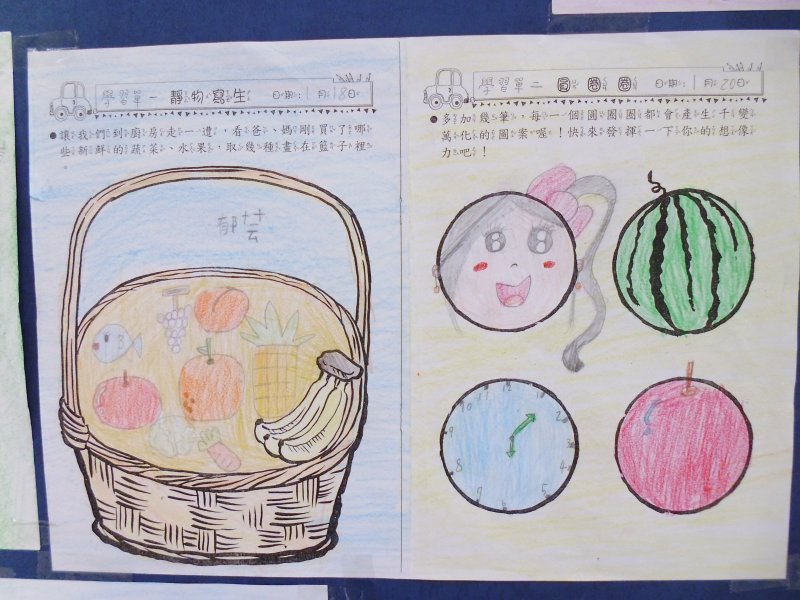 學習單一 靜物寫生 日期：1月18日
●讓我們到廚房走一遭，看爸、媽剛買了哪
些新鮮的蔬菜、水果，取幾種畫在籃子裡
郁芸
學習單二 圓圈圈 日期：1月20日
●多加幾筆，每一個圓圈圈都會產生千變
萬化的圖案喔！快來發揮一下你的想像
力吧！